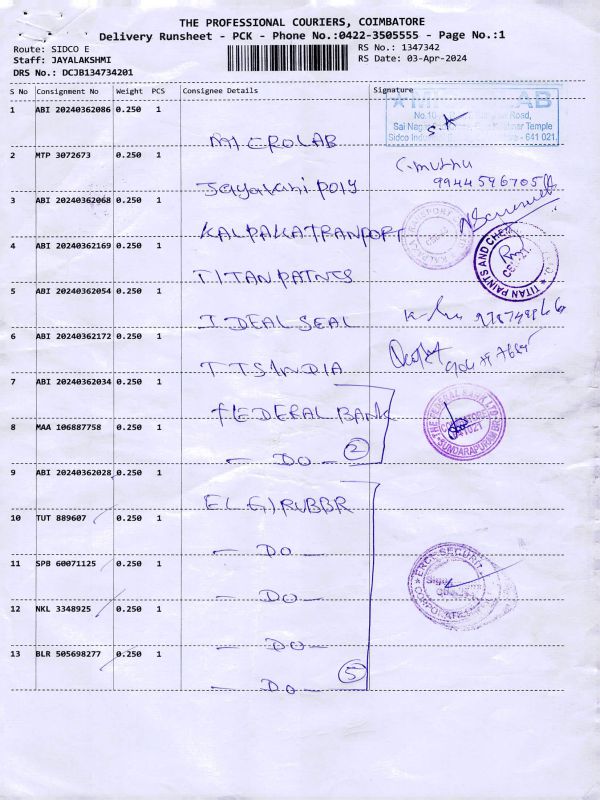 THE PROFESSIONAL COURIERS, COIMBATORE
Delivery Runsheet - PCK - Phone No.:0422-3505555 - Page No.:1
Route: SIDCO E
RS No.: 1347342
Staff: JAYALAKSHMI
RS Date: 03-Apr-2024
DRS No.: DCJB134734201
S No Consignment No Weight PCS Consignee Details Signature
1 ABI 20240362086 0.250 1 MICROLAB
LAB
No.10
Road,
Sai Nagar
Temple
Sidco Indu
- 641 021.
2 MTP 3072673 0.250 1 Jayavani poly
C. muthu
3 ABI 20240362068 0.250 1 KALPAKATRANPORT
4 ABI 20240362169 0.250 1 TITAN PAINTS
TITAN PAINTS AND CHEM
CBE-21.
5 ABI 20240362054 0.250 1 IDEAL SEAL
6 ABI 20240362172 0.250 1 TTS INDIA
7 ABI 20240362034 0.250 1 FEDERAL BANK
THE FEDERAL BANK LTD.
COIMBATORE
641021
SUNDARAPURAM BR.
8 MAA 106887758 0.250 1 — DO — 2
9 ABI 20240362028 0.250 1 ELGI RUBBR
10 TUT 889607 0.250 1 — DO —
11 SPB 60071125 0.250 1 — DO —
12 NKL 3348925 0.250 1 — DO —
13 BLR 505698277 0.250 1 — DO — 5